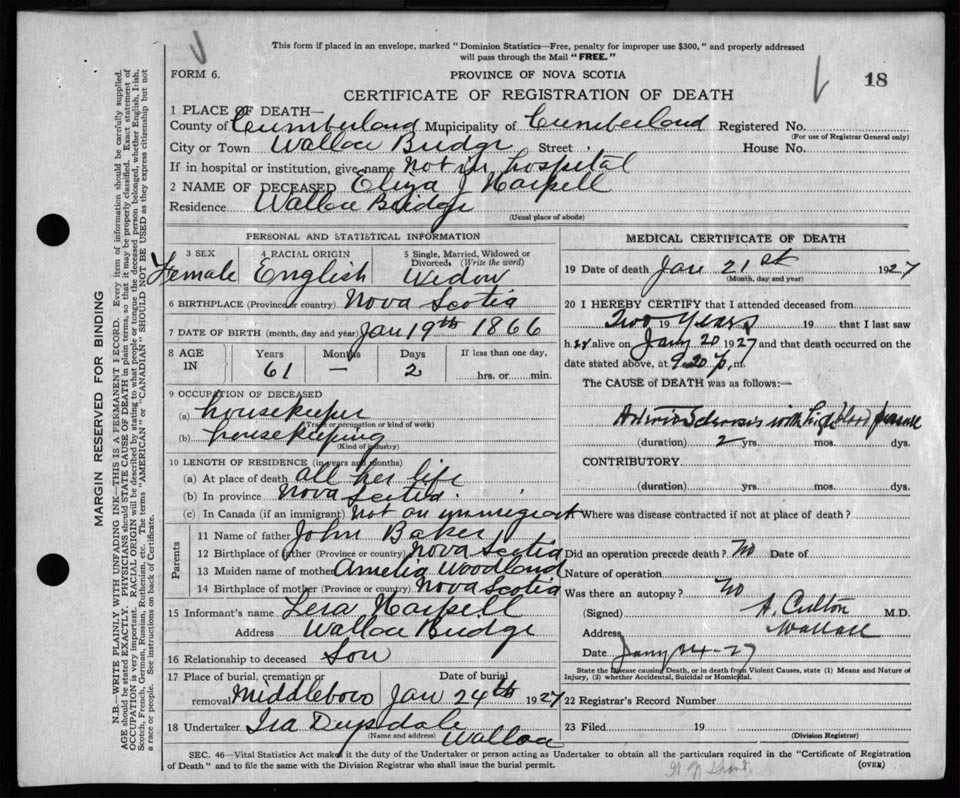 This form if placed in an envelope, marked "Dominion Statistics—Free, penalty for improper use $300," and properly addressed
will pass through the Mail "FREE."
FORM 6.
PROVINCE OF NOVA SCOTIA
18
CERTIFICATE OF REGISTRATION OF DEATH
1 PLACE OF DEATH—
County of Cumberland Municipality of Cumberland Registered No.
(For use of Registrar General only)
City or Town Wallace Bridge Street House No.
If in hospital or institution, give name Not in hospital
2 NAME OF DECEASED Eliza J
Residence Wallace Bridge
(Usual place of abode)
PERSONAL AND STATISTICAL INFORMATION
3 SEX 4 RACIAL ORIGIN 5 Single, Married, Widowed or
Divorced. (Write the word)
Female English Widow
6 BIRTHPLACE (Province or country) Nova Scotia
7 DATE OF BIRTH (month, day and year) Jan 19th 1866
8 AGE IN Years Months Days If less than one day,
61 — 2 hrs. or min.
9 OCCUPATION OF DECEASED
(a) housekeeper
(Trade occupation or kind of work)
(b) housekeeping
(Kind of industry)
10 LENGTH OF RESIDENCE (in years and months)
(a) At place of death all her life
(b) In province Nova Scotia
(c) In Canada (if an immigrant) Not an immigrant
Parents
11 Name of father John Baker
12 Birthplace of father (Province or country) Nova Scotia
13 Maiden name of mother Amelia Woodland
14 Birthplace of mother (Province or country) Nova Scotia
15 Informant's name
Address Wallace Bridge
16 Relationship to deceased Son
17 Place of burial, cremation or Date of burial
removal Middleboro Jan 24th 1927
18 Undertaker Ira
(Name and address) Wallace
MEDICAL CERTIFICATE OF DEATH
19 Date of death Jan 21st 1927
(Month, day and year)
20 I HEREBY CERTIFY that I attended deceased from
Two 19 Years 19 that I last saw
her alive on Jany 20 1927 and that death occurred on the
date stated above, at 9.20 p. m.
The CAUSE of DEATH was as follows:—
Arterio Sclerosis with high blood pressure
(duration) 2 yrs. mos. dys.
CONTRIBUTORY
(duration) yrs. mos. dys.
Where was disease contracted if not at place of death?
Did an operation precede death? No Date of
Nature of operation
Was there an autopsy? No
(Signed) M.D.
Address Wallace
Date Jany 24-27
State the Disease causing Death, or in death from Violent Causes, state (1) Means and Nature of
Injury, (2) whether Accidental, Suicidal or Homicidal.
22 Registrar's Record Number
23 Filed 19
(Division Registrar)
SEC. 46—Vital Statistics Act makes it the duty of the Undertaker or person acting as Undertaker to obtain all the particulars required in the "Certificate of Registration
of Death" and to file the same with the Division Registrar who shall issue the burial permit.
(OVER)
MARGIN RESERVED FOR BINDING
N.B.—WRITE PLAINLY WITH UNFADING INK—THIS IS A PERMANENT RECORD. Every item of information should be carefully supplied.
AGE should be stated EXACTLY. PHYSICIANS should STATE CAUSE OF DEATH in plain terms, so that it may be properly classified. Exact statement of
OCCUPATION is very important. RACIAL ORIGIN will be described by stating to what people or tongue the deceased person belonged, whether English, Irish,
Scotch, French, German, Russian, Ruthenian, etc. The terms "AMERICAN" or "CANADIAN" SHOULD NOT BE USED as they express citizenship but not
a race or people. See instructions on back of Certificate.